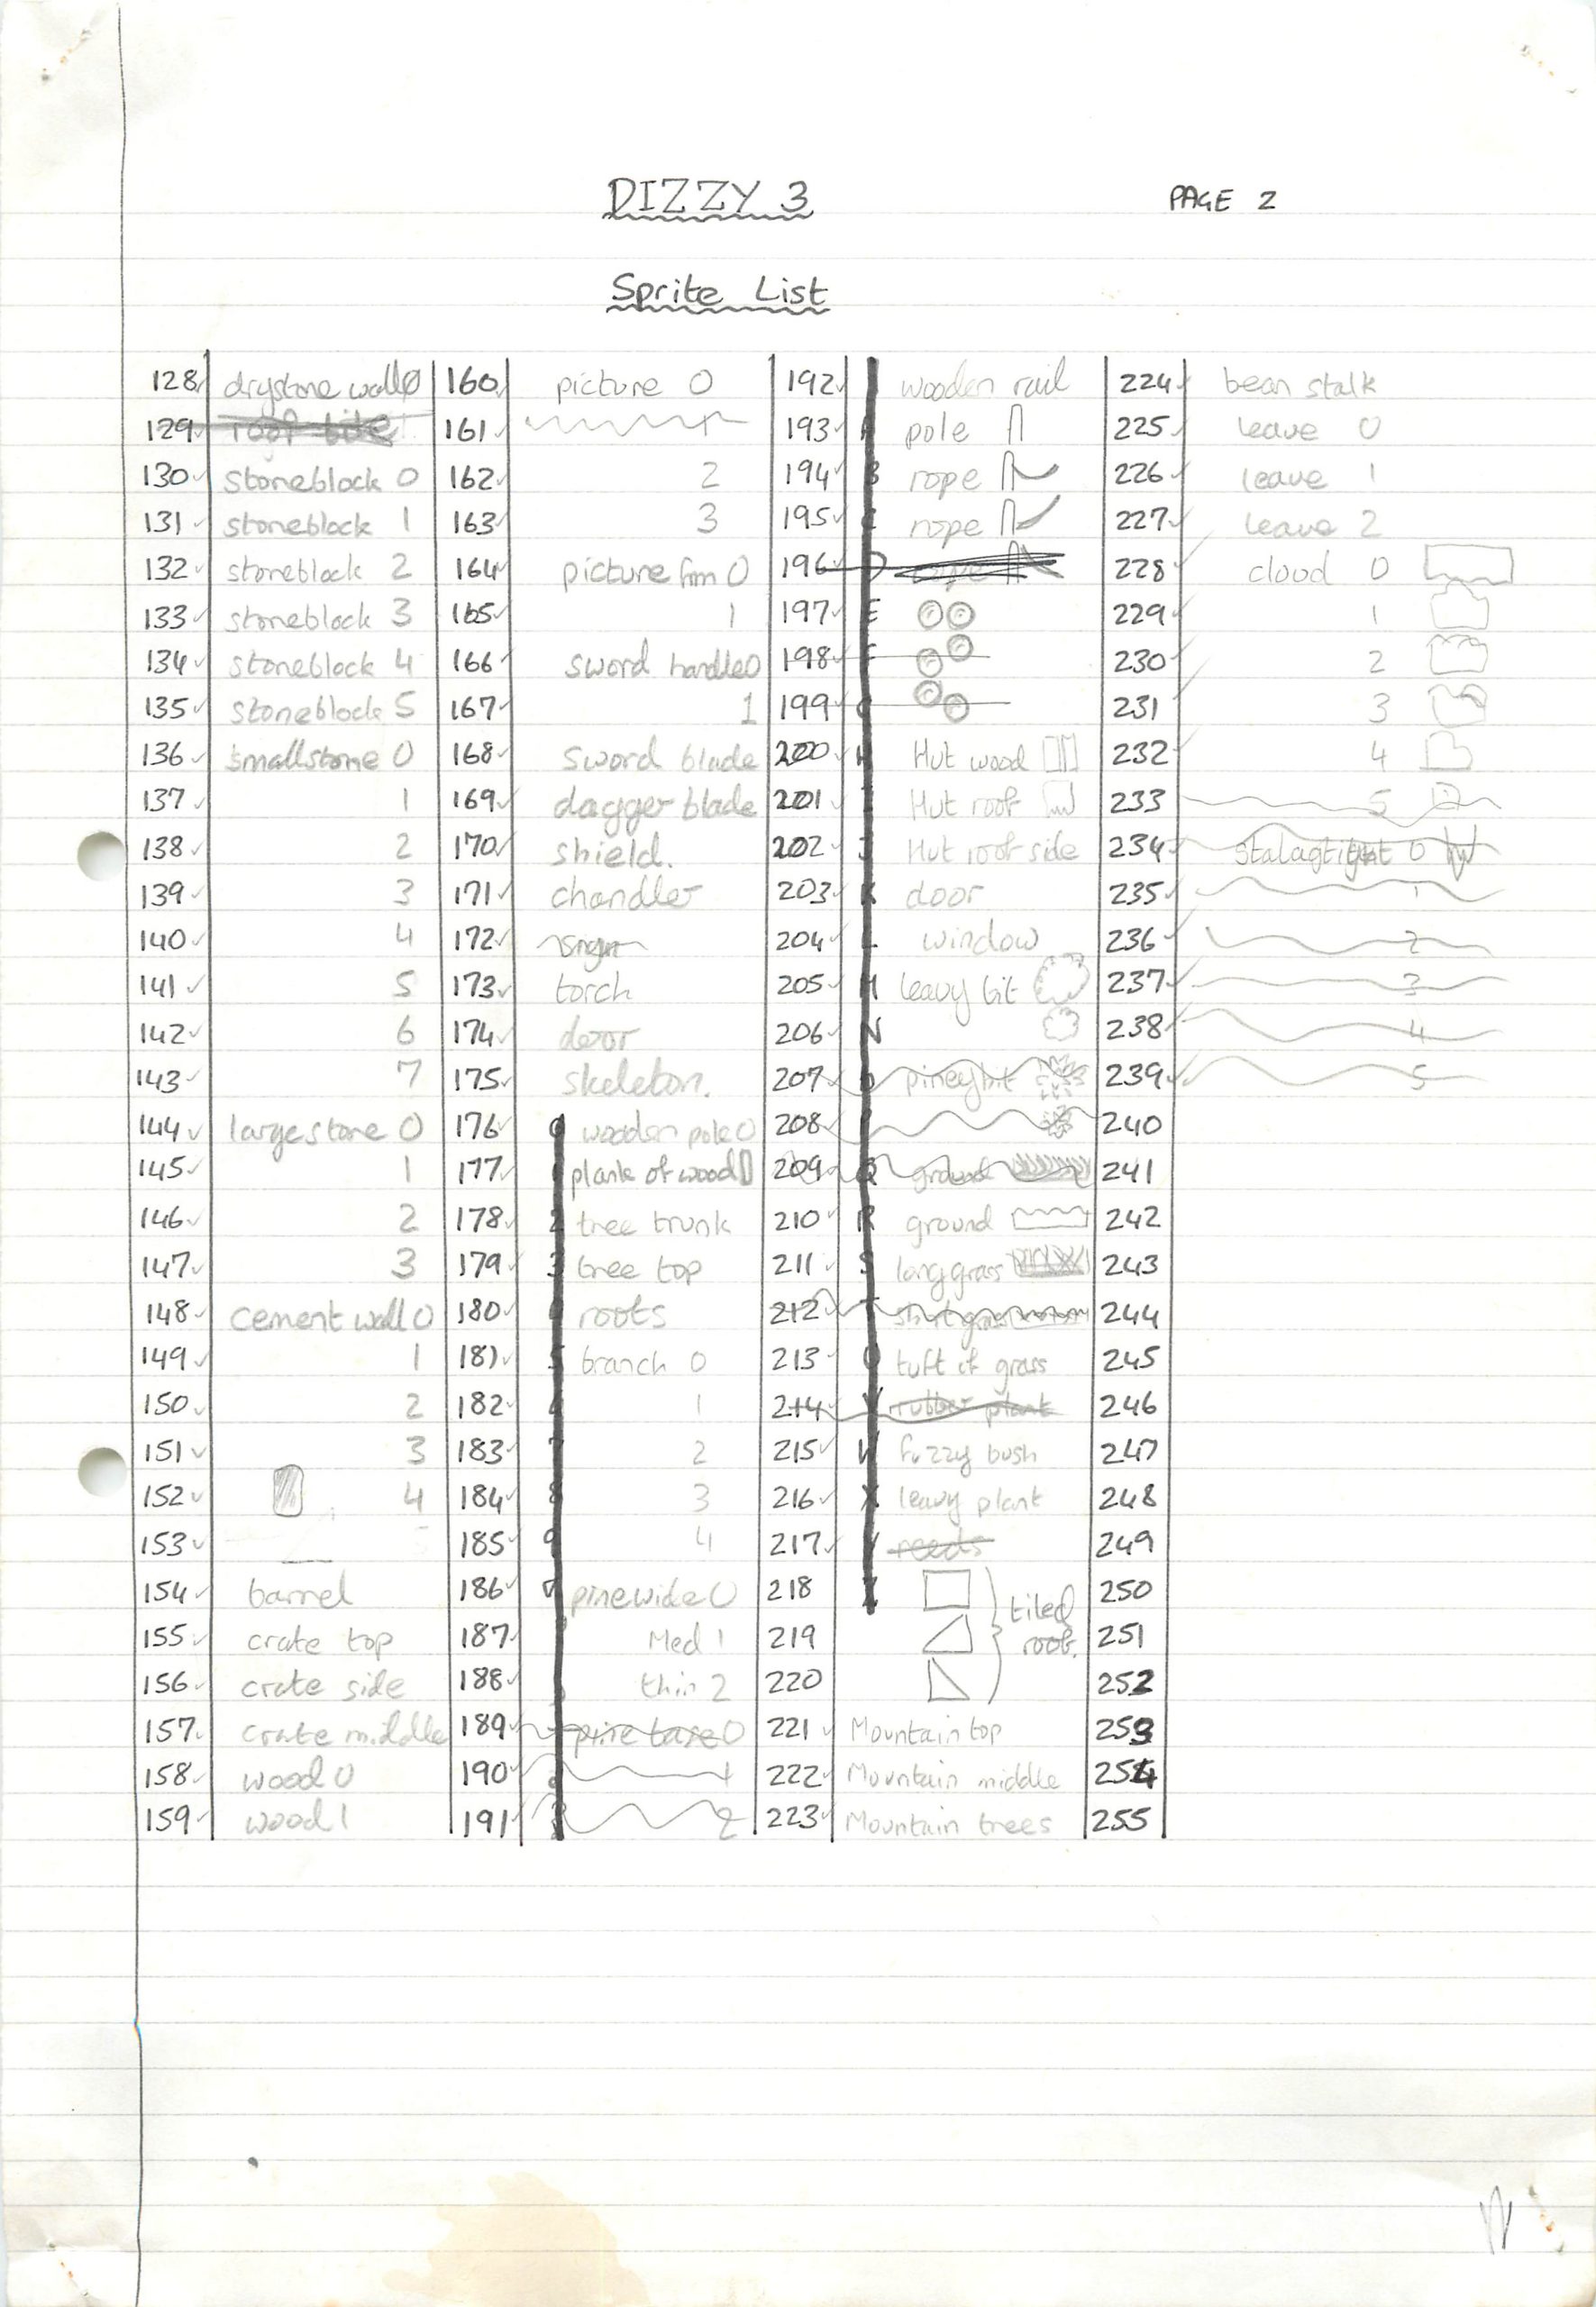 DIZZY 3 PAGE 2
Sprite List
128 drystone wall 0 160 picture 0 192 wooden rail 224 bean stalk
129 roof tile 161 1 193 A pole 225 leave 0
130 stoneblock 0 162 2 194 B rope 226 leave 1
131 stoneblock 1 163 3 195 C rope 227 leave 2
132 stoneblock 2 164 picture frm 0 196 D rope 228 cloud 0
133 stoneblock 3 165 1 197 E 229 1
134 stoneblock 4 166 sword handle 0 198 F 230 2
135 stoneblock 5 167 1 199 G 231 3
136 smallstone 0 168 sword blade 200 H Hut wood 232 4
137 1 169 dagger blade 201 I Hut roof 233 5
138 2 170 shield. 202 J Hut roof side 234 0
139 3 171 chandler 203 K door 235 1
140 4 172 204 L window 236 2
141 5 173 torch 205 M leavy bit 237 3
142 6 174 door 206 N 238 4
143 7 175 skeleton. 207 pineybit 239 5
144 largestone 0 176 0 wooden pole 0 208 240
145 1 177 1 plank of wood 209 Q ground 241
146 2 178 2 tree trunk 210 R ground 242
147 3 179 3 tree top 211 S long grass 243
148 cement wall 0 180 roots 212 T short grass 244
149 1 181 5 branch 0 213 tuft of grass 245
150 2 182 1 214 V rubber plant 246
151 3 183 7 2 215 W fuzzy bush 247
152 4 184 8 3 216 X leavy plant 248
153 185 9 4 217 Y reeds 249
154 barrel 186 pinewide 0 218 Z tiled 250
155 crate top 187 Med 1 219 roof. 251
156 crate side 188 thin 2 220 252
157 crate middle 189 pine base 0 221 Mountain top 253
158 wood 0 190 1 222 Mountain middle 254
159 wood 1 191 2 223 Mountain trees 255